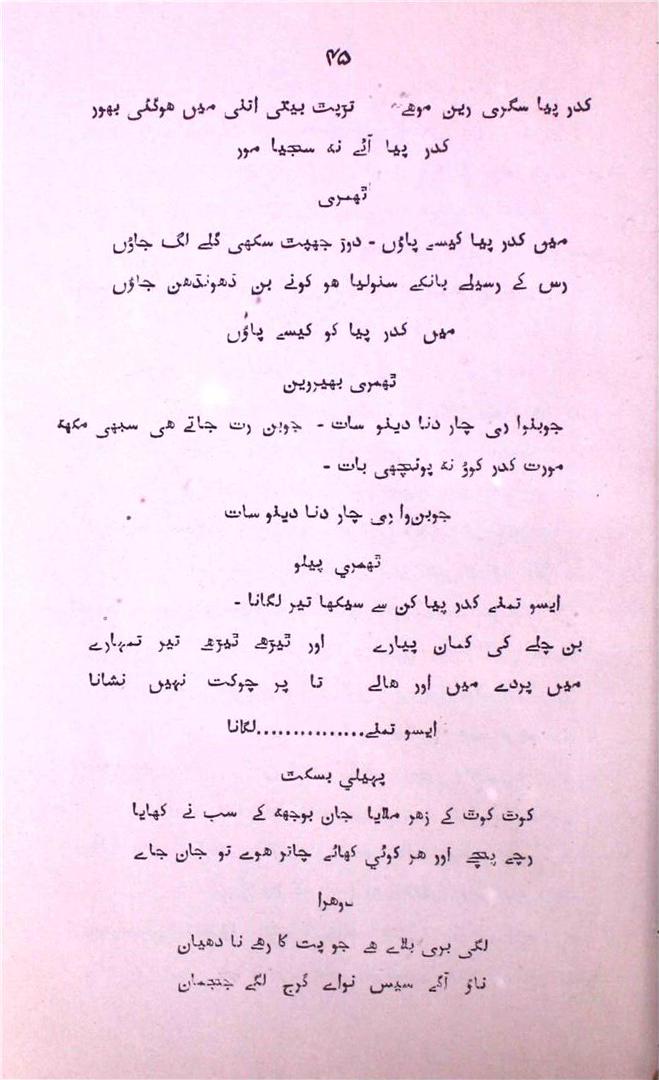 ۴۵
کدر پیا سگری رین موهے تڑپت بیتی اتنی میں هوگئی بهور
کدر پیا آئے نه سجیا مور
ٹهمری
میں کدر پیا کیسے پاؤں - دوڑ جهپت سکهی گلے لگ جاؤں
رس کے رسیلے بانکے سنولیا هو کونے بن ڈهونڈهن جاؤں
میں کدر پیا کو کیسے پاؤں
ٹهمری بهیروین
جوبنوا ری چار دنا دینو سات - جوبن رت جاتے هی سبهی مکهه
مورت کدر کوؤ نه پونچهی بات -
جوبنوا ری چار دنا دینو سات
ٹهمري پیلو
ایسو تمنے کدر پیا کن سے سیکها تیر لگانا -
بن چلے کی کمان پیارے اور ٹیڑهے ٹیڑهے تیر تمہارے
میں پردے میں اور هالے تا پر چوکت نہیں نشانا
ایسو تمنے...............لگانا
پہیلي بسکت
کوٹ کوٹ کے زهر ملایا جان بوجهه کے سب نے کهایا
رچے پچے اور هر کوئي کهائے چاتر هوے تو جان جاے
دوهرا
لگی بری بلاے هے جو پت کا رهے نا دهیان
ناؤ آگے سیس نواے گرج لگے ججمان